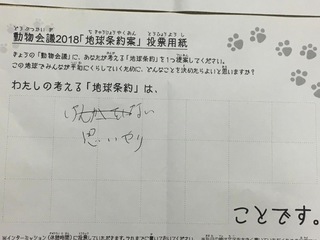 どうぶつかいぎ ちきゅうじょうやくあん とうひょうようし
動物会議2018「地球条約案」投票用紙
きょうの「動物会議」に、あなたが考える「地球条約」を1つ提案してください。
この地球でみんなが平和にくらしていくために、どんなことを決めたらよいと思いますか?
わたしの考える「地球条約」は、
けんかをしない
思いやり
ことです。